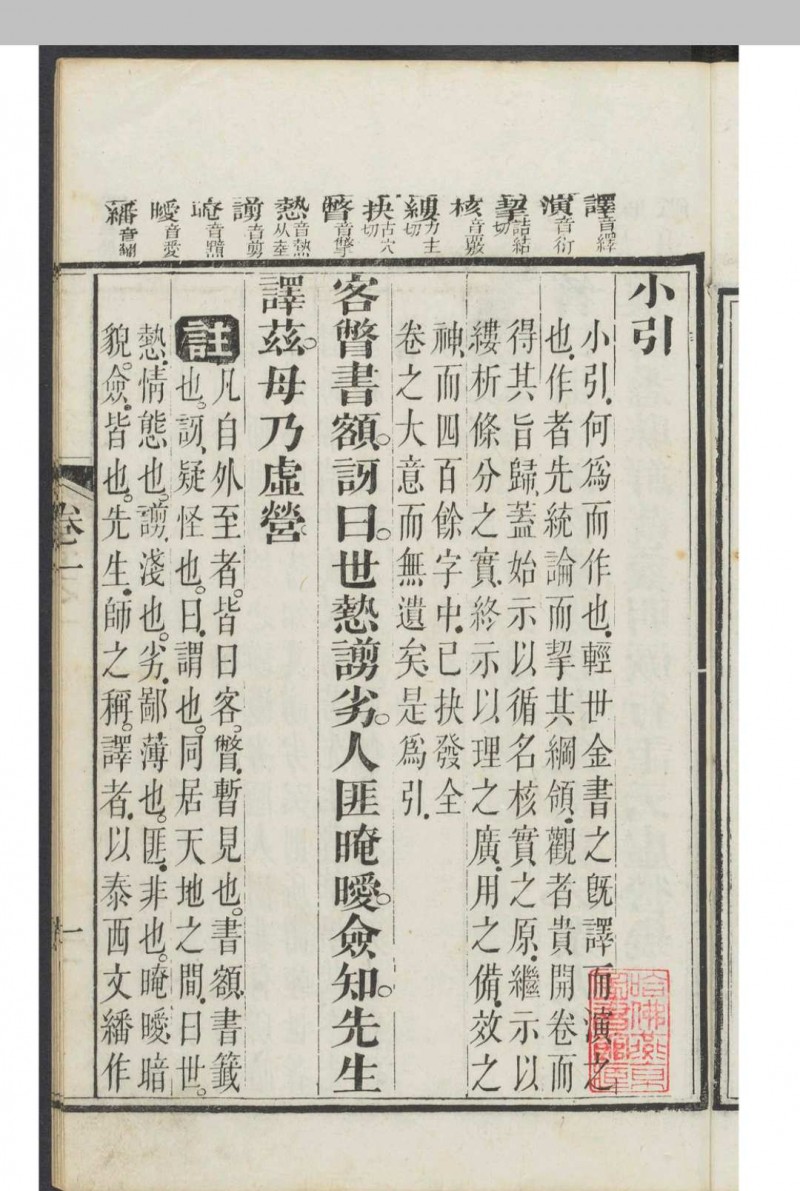 譯音繹
演音衍
挈詰結切
核音覈
縷力主切
抉古穴切
瞥音撆
熱音熱从埶
謭音剪
晻音黯
曖音愛
繙音翻
小引
小引何爲而作也輕世金書之旣譯而演之
也作者先統論而挈其綱領觀者貴開卷而
得其旨歸蓋始示以循名核實之原繼示以
縷析條分之實終示以理之廣用之備效之
神而四百餘字中已抉發全
卷之大意而無遺矣是爲引
客瞥書額訝曰世熱謭劣人匪晻曖僉知先生
譯茲毋乃虛營
註凡自外至者皆曰客瞥暫見也書額書籤
也訝疑怪也曰謂也同居天地之間曰世
熱情態也謭淺也劣鄙薄也匪非也晻曖暗
貌僉皆也先生師之稱譯者以泰西文繙作
卷一
一
哈佛燕京圖書館